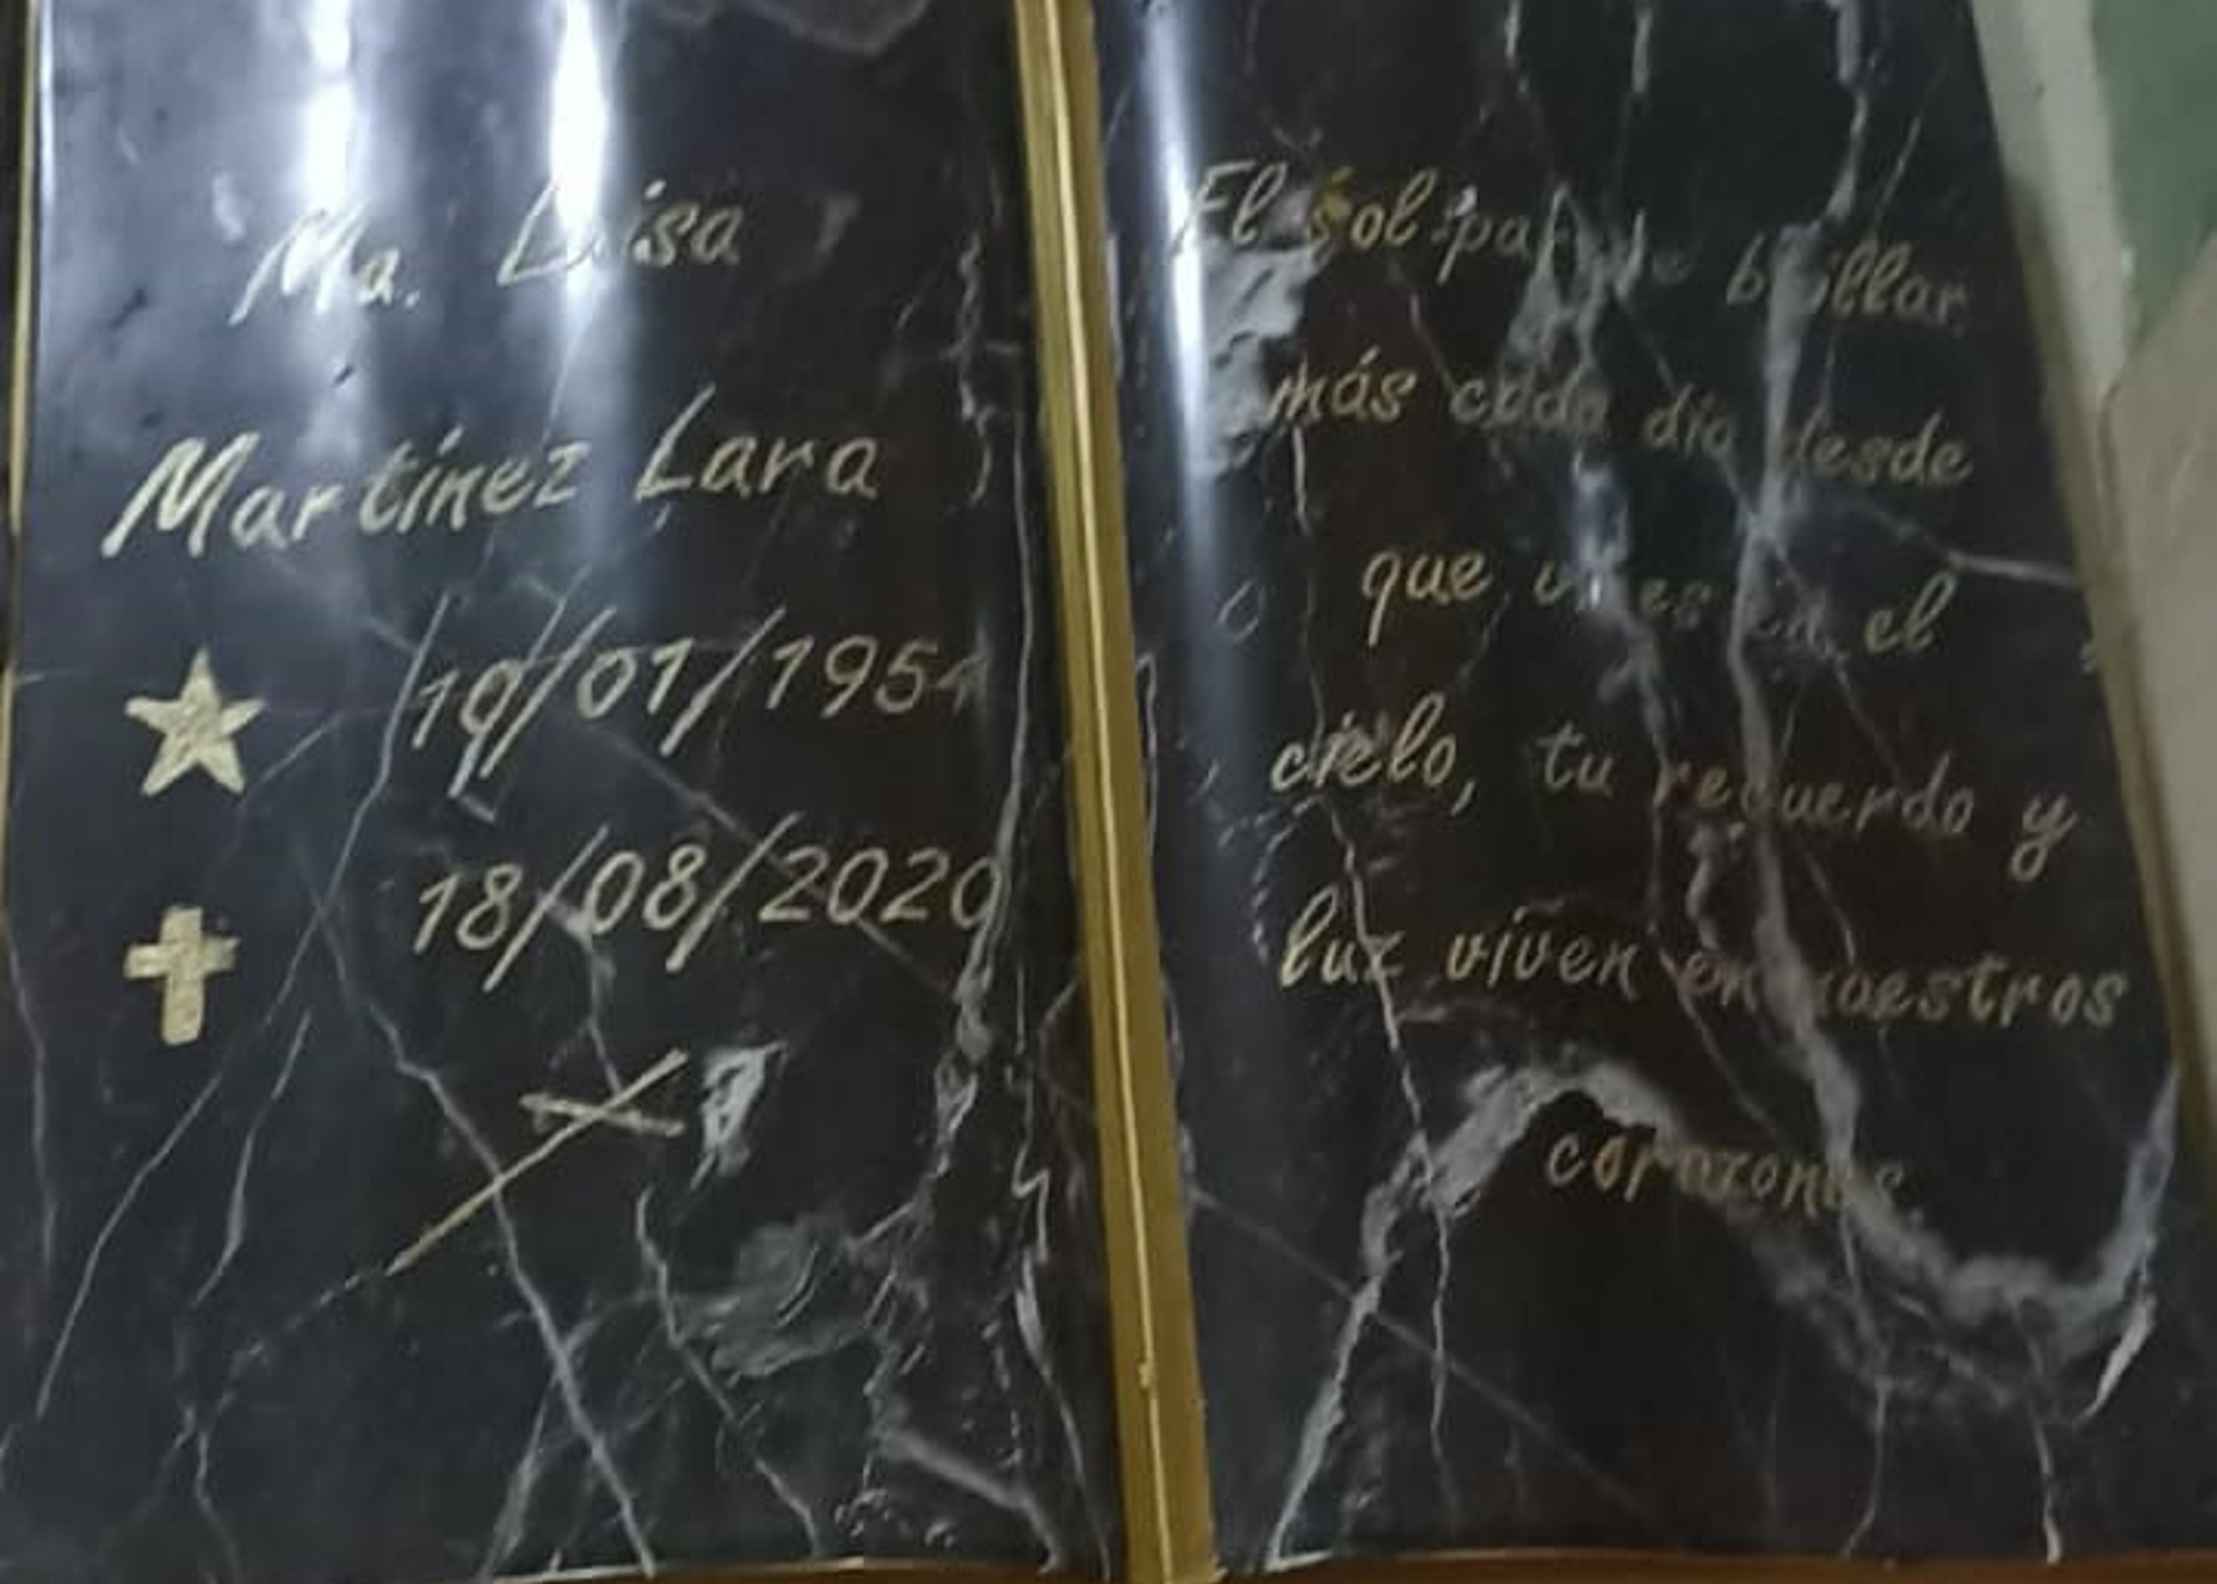 Ma. Luisa
Martínez Lara
10/01/1954
18/08/2020
El sol parece brillar
más cada día desde
que vives en el
cielo, tu recuerdo y
luz viven en nuestros
corazones.